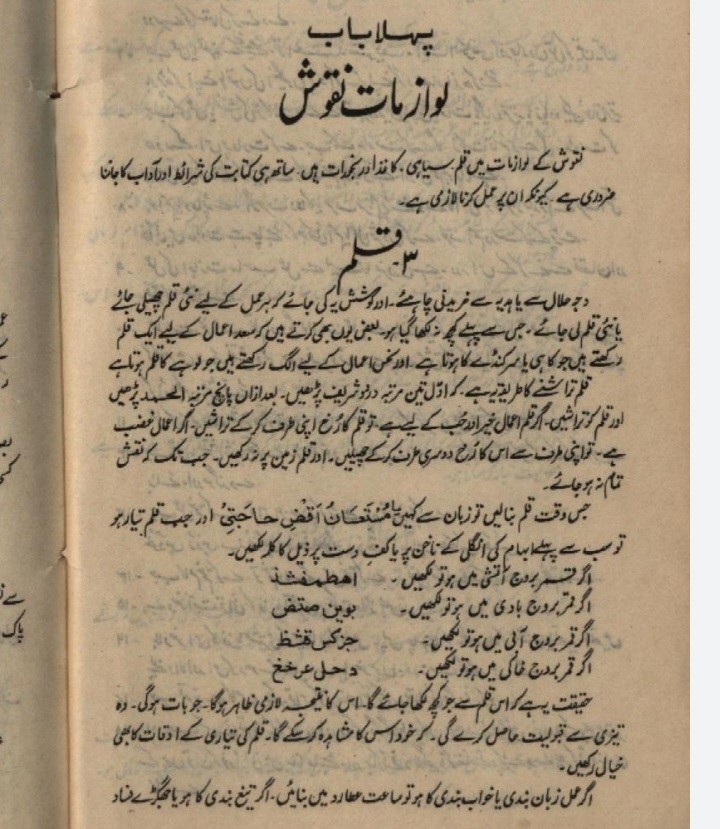 پہلا باب
لوازمات نقوش
نقوش کے لوازمات میں قلم سیاہی، کاغذ اور بخورات ہیں۔ ساتھ ہی کتابت کی شرائط اور آداب کا جاننا
ضروری ہے۔ کیونکہ ان پر عمل کرنا لازمی ہے۔
۳۔ قلم
وجہ حلال سے یا ہدیہ سے خریدنی چاہئے۔ اور کوشش یہ کی جائے کہ ہر عمل کے لیے نئی قلم چھیلی جائے
یا نئی قلم لی جائے، جس سے پہلے کچھ نہ لکھا گیا ہو۔ بعض یوں بھی کرتے ہیں کہ سعد اعمال کے لیے ایک قلم
رکھتے ہیں جو کاہی یا سرکنڈے کا ہوتا ہے۔ اور نحس اعمال کے لیے الگ رکھتے ہیں جو لوہے کا قلم ہوتا ہے
قلم تراشنے کا طریقہ یہ ہے۔ کہ اوّل تین مرتبہ درود شریف پڑھیں۔ بعد ازاں پانچ مرتبہ الحمد پڑھیں
اور قلم کو تراشیں۔ اگر قلم اعمال خیر اور حُب کے لیے ہے۔ تو قلم کا رُخ اپنی طرف کر کے تراشیں۔ اگر اعمال غضب
ہے۔ تو اپنی طرف سے اس کا رُخ دوسری طرف کر کے چھیلیں۔ اور قلم زمین پر نہ رکھیں۔ جب تک کہ نقش
تمام نہ ہو جائے۔
جس وقت قلم بنالیں تو زبان سے کہیں یَا مُسْتَعَانُ اَقْضِ حَاجَتِیْ اور جب قلم تیار ہو
تو سب سے پہلے ابہام کی انگلی کے ناخن پر یا کفِ دست پر ذیل کا کلمہ لکھیں۔
اگر قمر بروج آتشی میں ہو تو لکھیں۔ اھطمفشذ
اگر قمر بروج بادی میں ہو تو لکھیں۔ بوین صتض
اگر قمر بروج آبی میں ہو تو لکھیں۔ جزکس قثظ
اگر قمر بروج خاکی میں ہو تو لکھیں۔ دحلعرخغ
حقیقت یہ ہے کہ اس قلم سے جو کچھ لکھا جائے گا۔ اس کا نتیجہ لازمی ظاہر ہوگا۔ جو بات ہوگی۔ وہ
تیزی سے قبولیت حاصل کرے گی۔ کہ خود اس کا مشاہدہ کر سکے گا۔ قلم کی تیاری کے اوقات کا بھی
خیال رکھیں۔
اگر عمل زبان بندی یا خواب بندی کا ہو تو ساعت عطارد میں بنائیں۔ اگر تیغ بندی کا ہو یا جھگڑے فساد